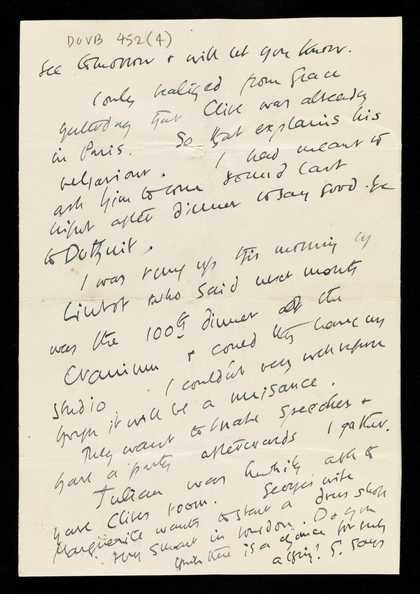 DOVB 452(4)
See tomorrow + will let you know.
I only realized from Grace
yesterday that Clive was already
in Paris. So that explains his
behaviour. I had meant to
ask him to come round last
night after dinner to say good-bye
to Duthuit.
I was rung up this morning by
who said next month
was the 100th dinner of the
Cranium & could they have my
studio I couldn't very well refuse
though it will be a nuisance.
They want to make speeches &
have a party afterwards I gather.
Julian was able to
have Clive's room. Georges wife
Marguerite wants to start a dress shop
very smart in London. Do you
think there is a chance for such
a thing? G. says